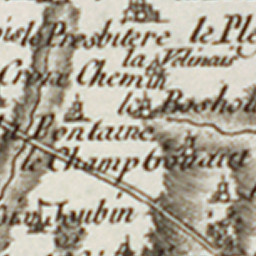 le Presbitere le Ple
la Vetinais
Croix Chemin
le Boshou
Fontaine
le Champ Grouaut
Joubin